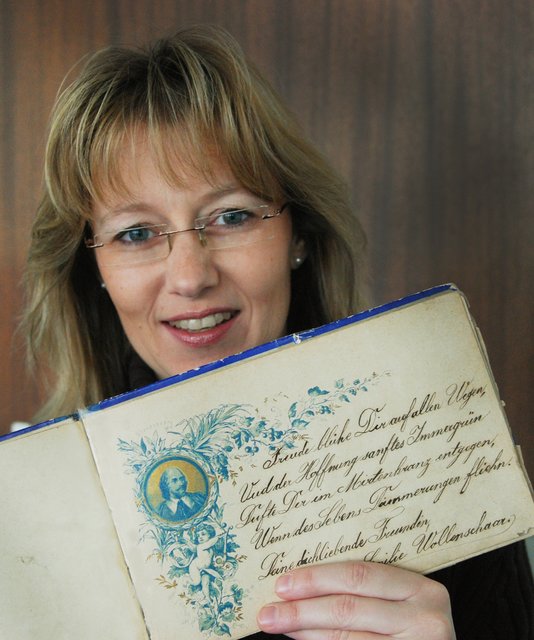 Freude blühe Dir auf allen Wegen,
Und der Hoffnung sanftes Immergrün
Düfte Dir im Mirtenkranz entgegen,
Wenn des Lebens Dämmerungen fliehn.
Deine dichliebende Freundin,
Wollenschaar.